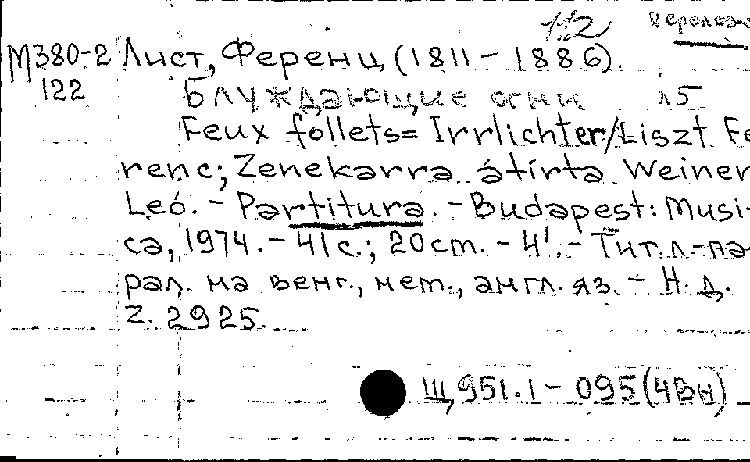 112
М380-2 Лист, Ференц (1811 – 1886).
122 Блуждающие огни 15
Feux follets = Irrlichter/Liszt Fe
renc; Zenekarra átírta Weiner
Leó. – Partitura. – Budapest: Musi-
ca, 1974. – 41 с.; 20 cm. – 4'. – Тит. л-па
рал. на венг., нем., англ. яз. – Н. д.
Z. 2925.
Щ951.1 – 095(4Вн)